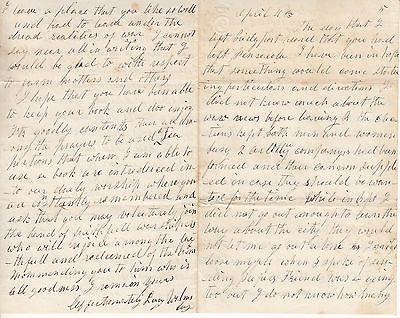 I leave a place that you like so well
and had to learn under the
dread realities of war I cannot
say near all in writing that I
would be glad to with respect
to your mothers and others
I hope that you have been able
to keep your book and do enjoy
its goodly contents there are
the prayers to be used
that when I am able to
use a book are introduced in
to our daily worship where you
are constantly remembered and
ask that you may voluntarily join
the band of faithful worshipers
who will rejoice among the fai
thfull and redeemed of the Com
mending you to him who is
all goodness I remain yours
Affectionately
April 4th
5
The day that I
left Bridgeport news told you had
left Pensacola I have been in hope
that something would come sta
ting particulars and directions I
did not know much about the
war news before leaving the
kept both men and women
busy 2 Artillery companys had been
formed and their cannon supplie
d in case they should be wan
ted for the time while in bpt I
did not go out enough to learn the
way about the city they would
not let me go out alone
loose myself when I spoke of sen
ding Friend was a going
too but I do not know how many